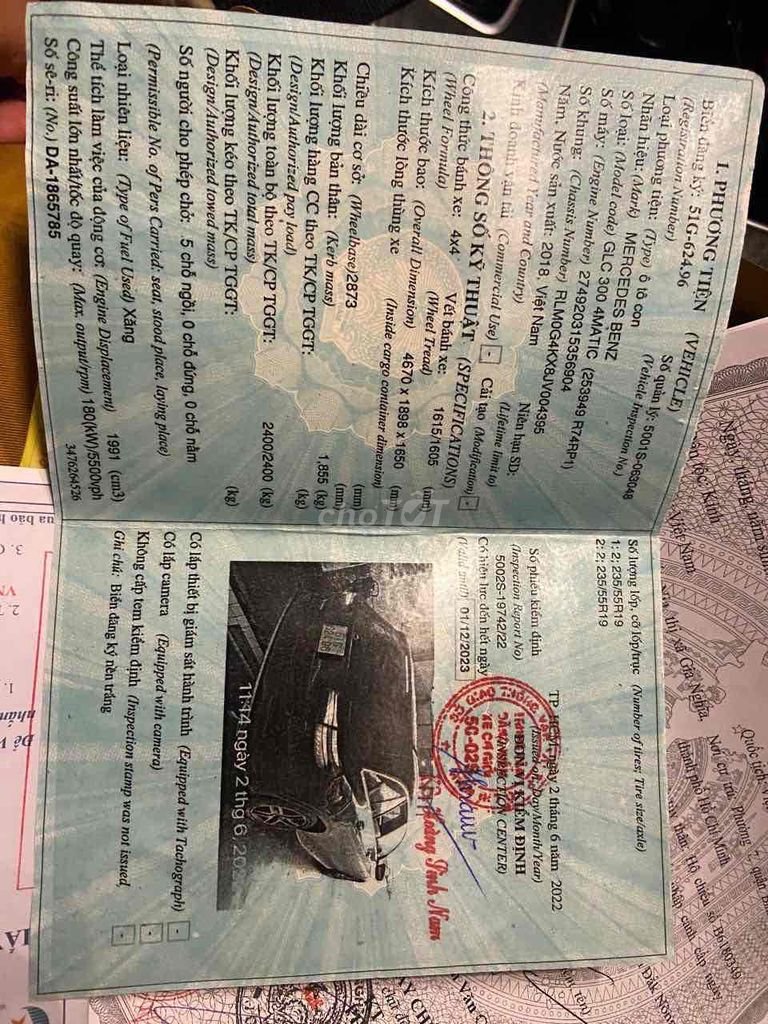 I. PHƯƠNG TIỆN (VEHICLE)
Biển đăng ký: 51G-624.96 Số quản lý: 5001S-063648
(Registration Number) (Vehicle Inspection No)
Loại phương tiện: (Type) ô tô con
Nhãn hiệu: (Mark) MERCEDES BENZ
Số loại: (Model code) GLC 300 4MATIC (253949 R74RP1)
Số máy: (Engine Number) 274920315356904
Số khung: (Chassis Number) RLM0G4KX8JV004995
Năm, Nước sản xuất: 2018, Việt Nam Niên hạn SD:
(Manufactured Year and Country) (Lifetime limit to)
Kinh doanh vận tải (Commercial Use) - Cải tạo (Modification) -
2. THÔNG SỐ KỸ THUẬT (SPECIFICATIONS)
Công thức bánh xe: 4x4 Vết bánh xe: 1615/1605 (mm)
(Wheel Formula) (Wheel Tread)
Kích thước bao: (Overall Dimension) 4670 x 1898 x 1650 (mm)
Kích thước lòng thùng xe
(Inside cargo container dimension) (mm)
Chiều dài cơ sở: (Wheelbase) 2873 (mm)
Khối lượng bản thân: (Kerb mass) 1,855 (kg)
Khối lượng hàng CC theo TK/CP TGGT: (kg)
(Design/Authorized pay load)
Khối lượng toàn bộ theo TK/CP TGGT: 2400/2400 (kg)
(Design/Authorized total mass)
Khối lượng kéo theo TK/CP TGGT: (kg)
(Design/Authorized towed mass)
Số người cho phép chở: 5 chỗ ngồi, 0 chỗ đứng, 0 chỗ nằm
(Permissible No. of Pers Carried: seat, stood place, laying place)
Loại nhiên liệu: (Type of Fuel Used) Xăng
Thể tích làm việc của động cơ: (Engine Displacement) 1991 (cm3)
Công suất lớn nhất/tốc độ quay: (Max. output/rpm) 180(kW)/5500vph
Số sê-ri: (No) DA-1865785 3476264526
Số lượng lốp, cỡ lốp/trục (Number of tires; Tire size/axle)
1: 2; 235/55R19
2: 2; 235/55R19
TP. HCM, ngày 2 tháng 6 năm 2022
Số phiếu kiểm định (Issued on: Day/Month/Year)
(Inspection Report No) ĐƠN VỊ KIỂM ĐỊNH
5002S-19742/22 (INSPECTION CENTER)
Có hiệu lực đến hết ngày
(Valid until) 01/12/2023
Hoàng Đình Nam
11:14 ngày 2 thg 6, 20
Có lắp thiết bị giám sát hành trình (Equipped with Tachograph) -
Có lắp camera (Equipped with camera) -
Không cấp tem kiểm định (Inspection stamp was not issued) -
Ghi chú: Biển đăng ký nền trắng
chợTỐT